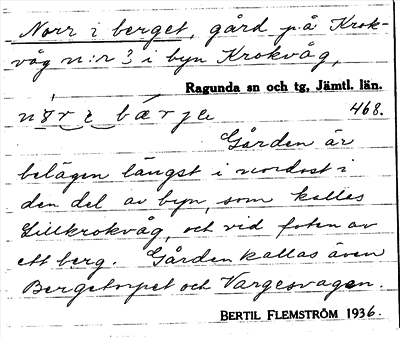 Norr i berget, gård på Krok-
våg n:r 3 i byn Krokvåg,
Ragunda sn och tg, Jämtl. län.
468.
Gården är
belägen längst i nordost i
den del av byn, som kallas
Lillkrokvåg, och vid foten av
ett berg. Gården kallas även
Bergetorpet och Vargesvagen.
BERTIL FLEMSTRÖM 1936.